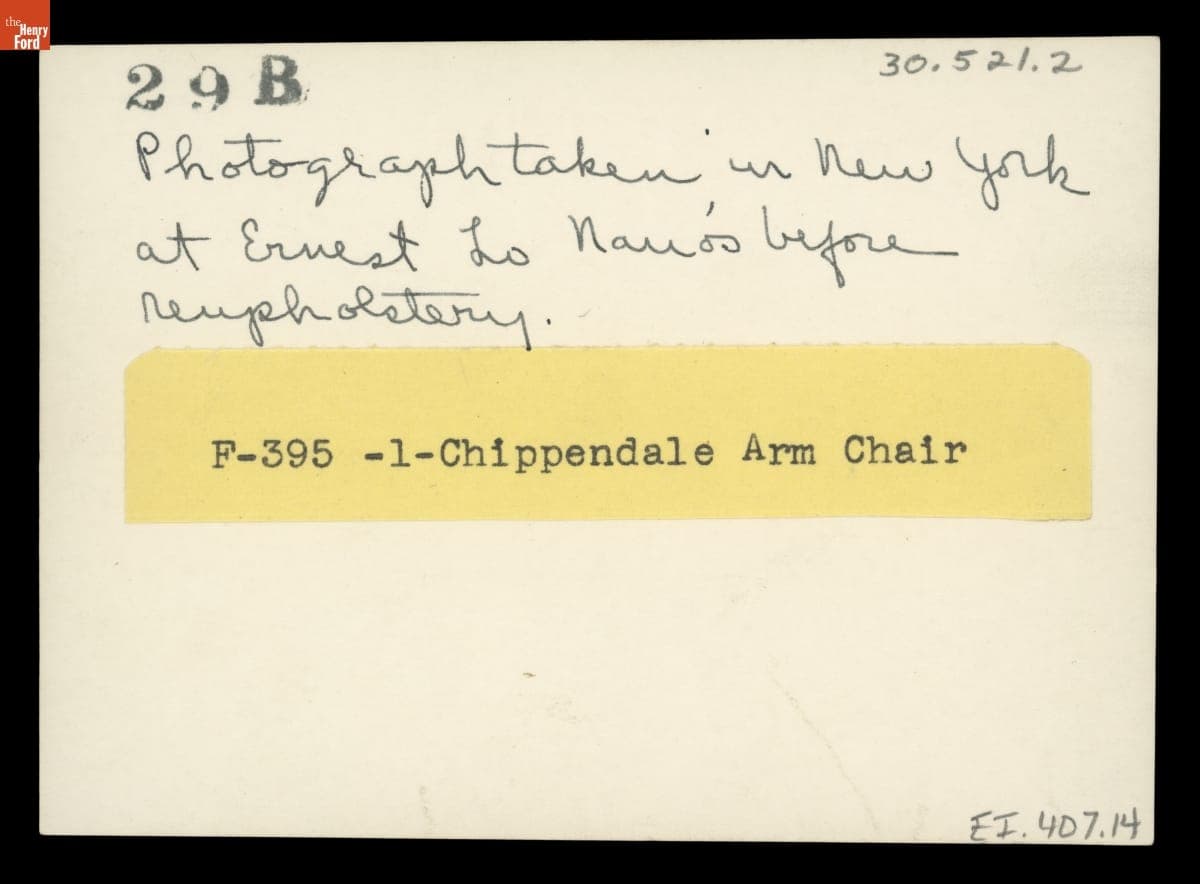 the
Henry
Ford
29 B
30.521.2
Photograph taken in New York
at Ernest Lo Nano's before
reupholstery.
F-395 -1-Chippendale Arm Chair
EI.407.14